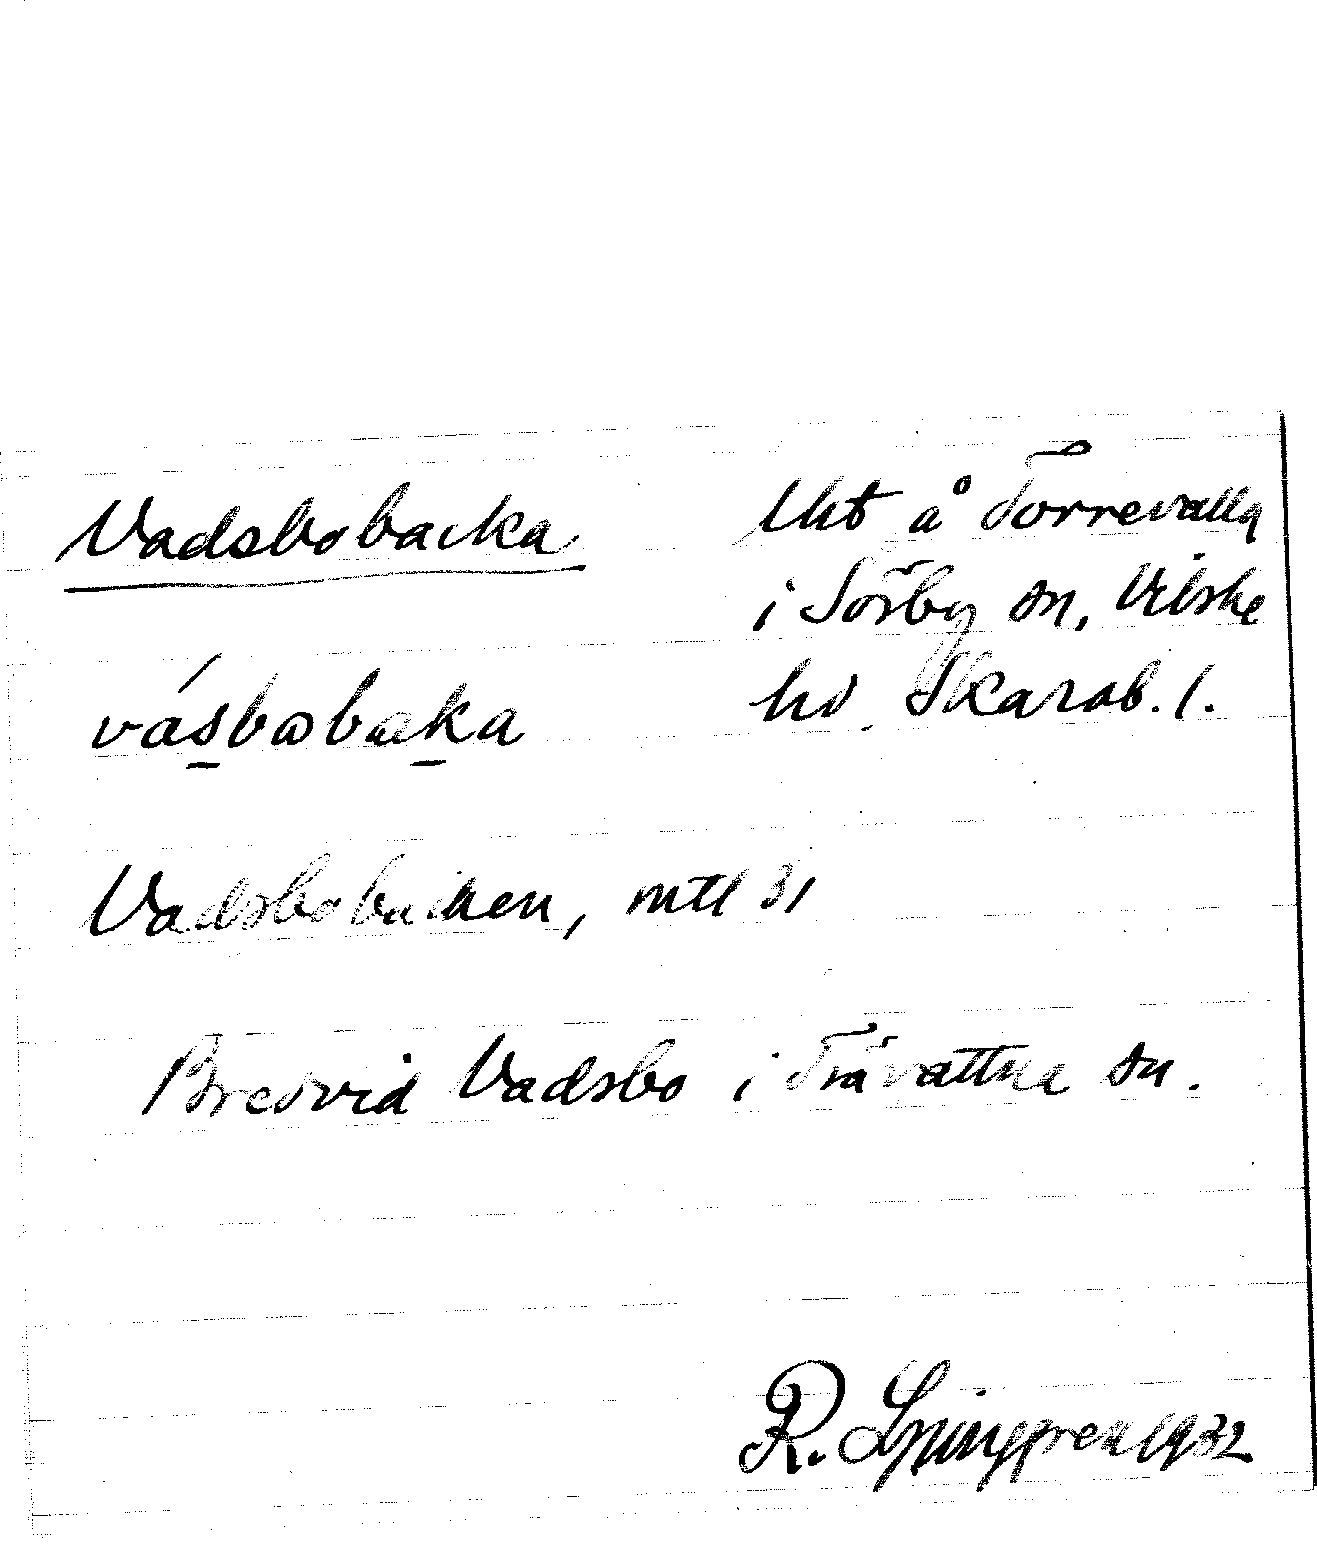 Vadsbobacka
Uht å Torrevalla
i Sörby sn, Vilske
hd Skarab. l.
vásbωbaka
Vadsbobacken, mtl 31
Bredvid Vadsbo i Trävattna sn.
R. Ljunggren 1932